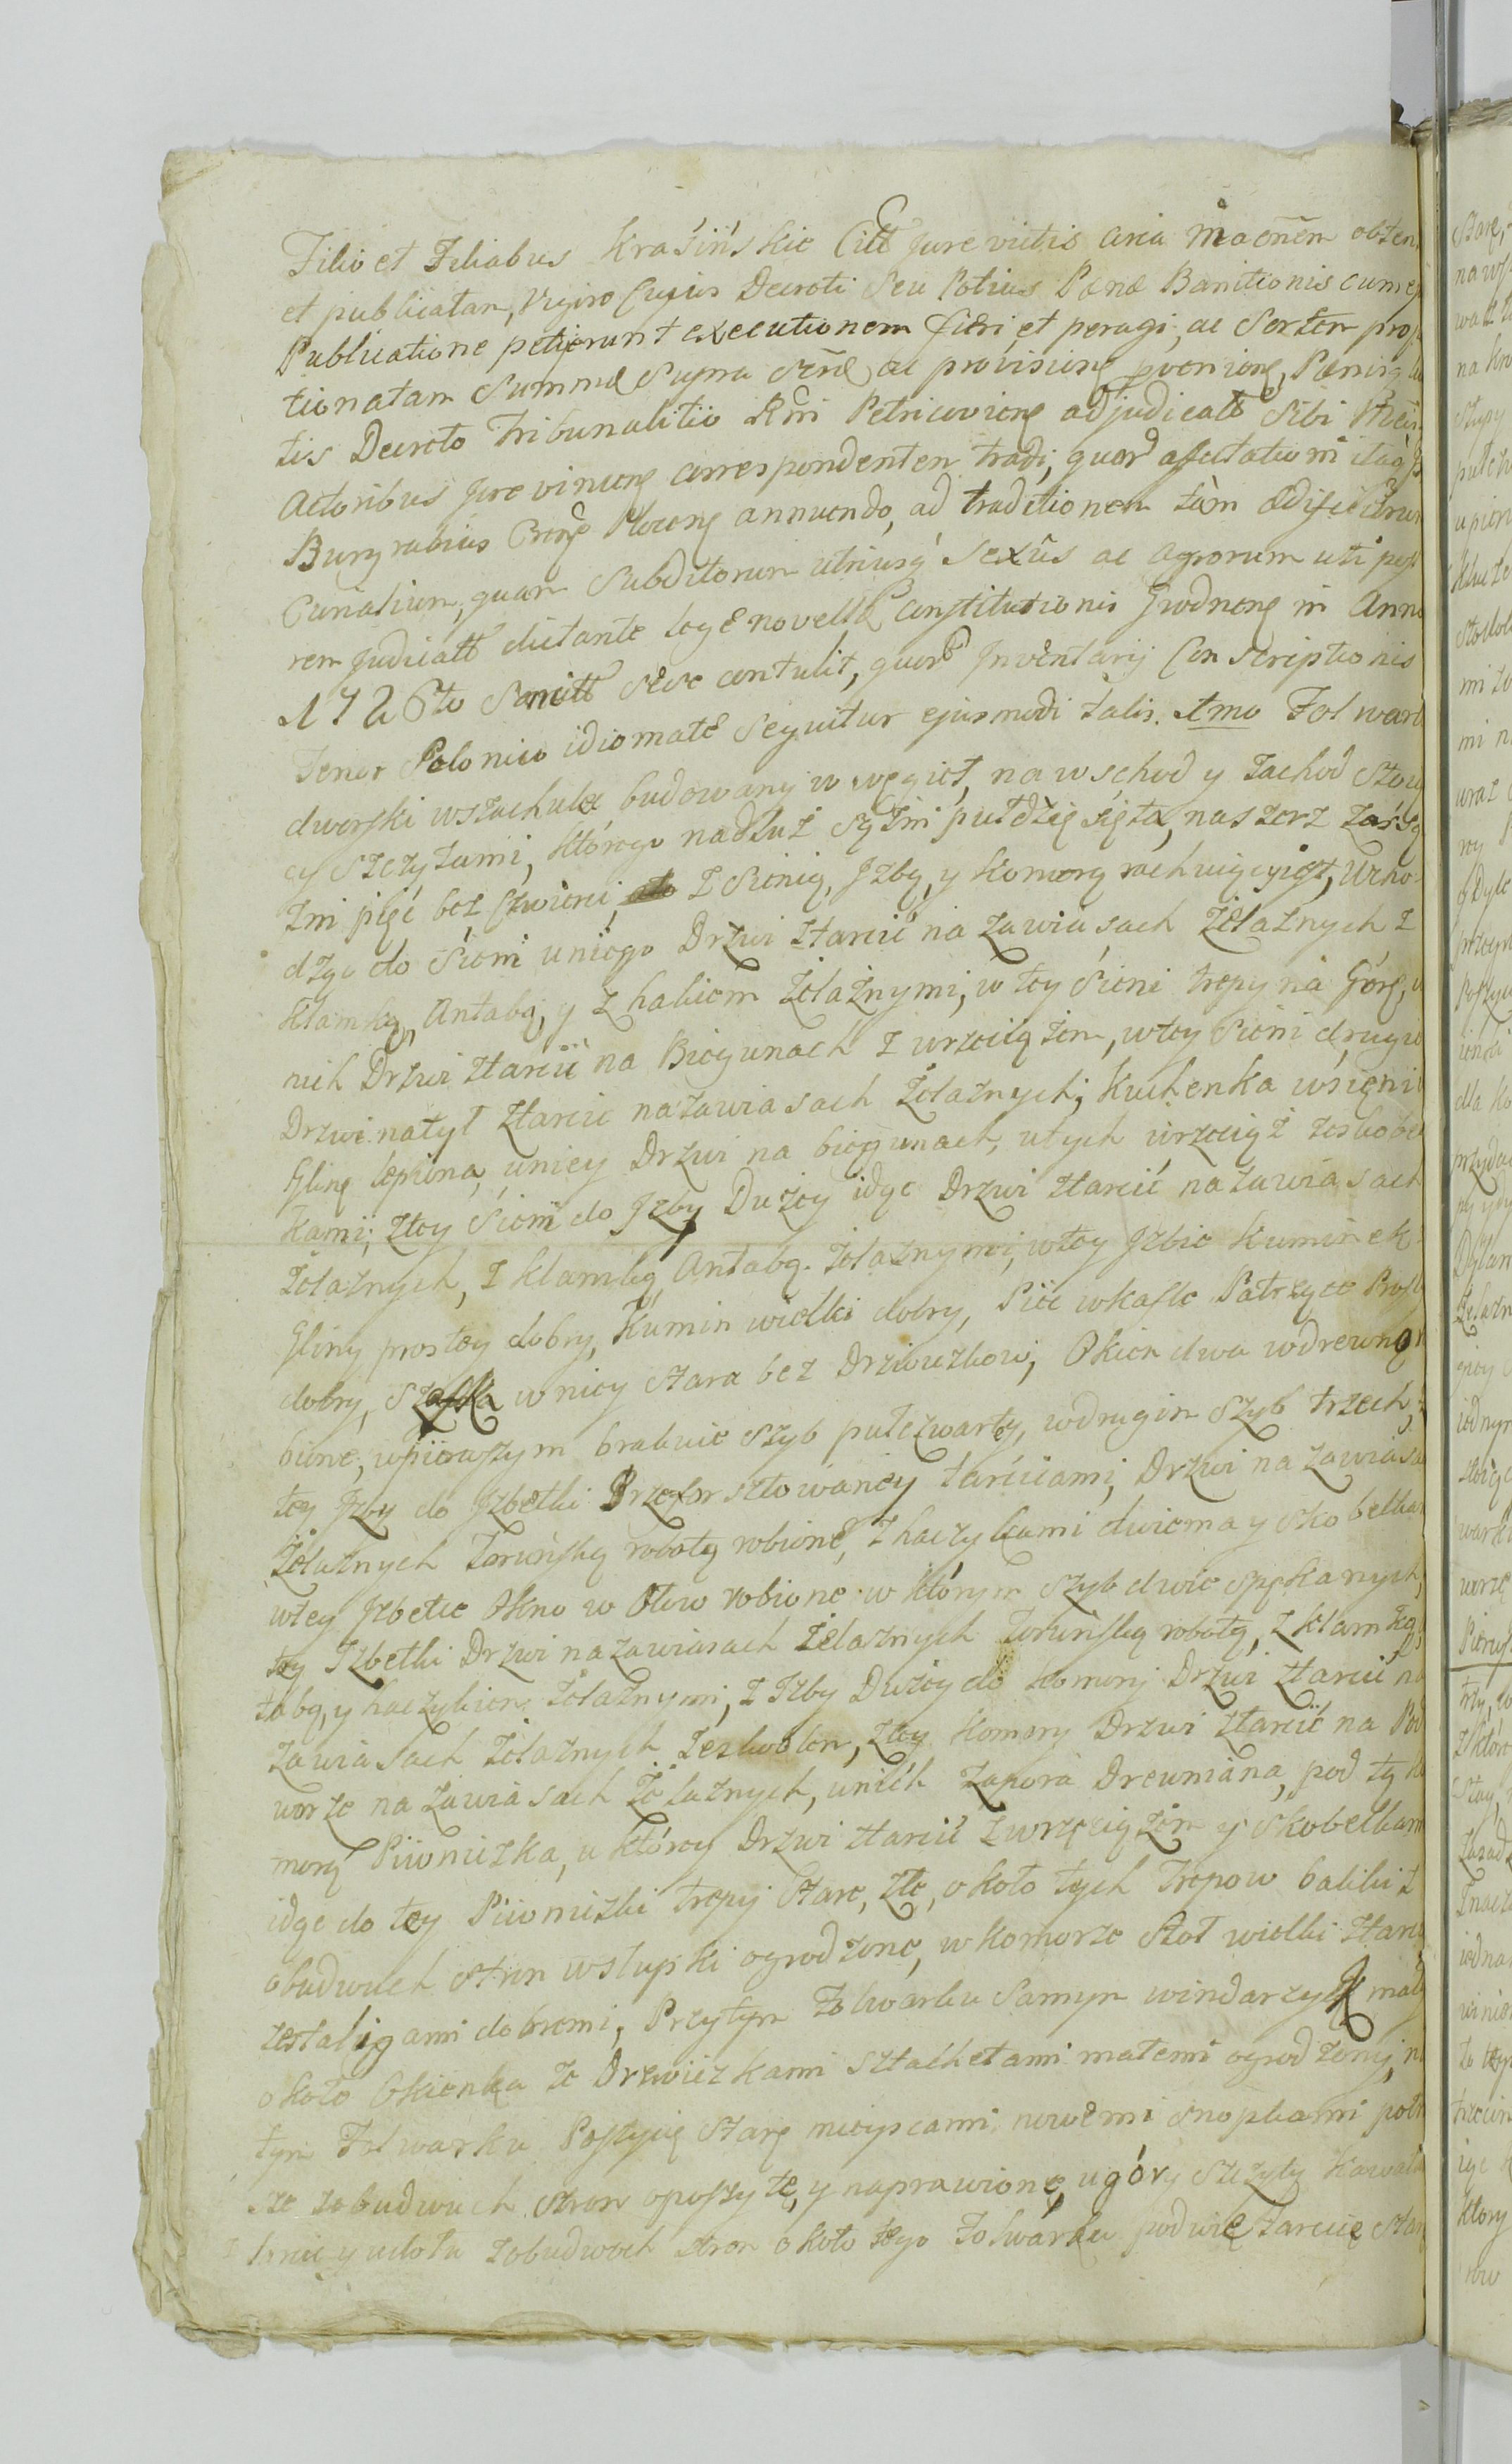 Filio et Filiabus Krasińskie Citt Jure victis circa obten
et publicatam, Vigore Cujus Decreti Seu Potius Pænæ Banitionis cum ej
Publicatione petierunt executionem fieri et peragi, ac Sortem propr
tionatam Summæ Supra ac provisione Pænisq
tis Decreto Tribunalitio Petricoviens adjudicatt Sibi
Actoribus Jure vincens correspondentem tradi, quor affectationi itaq
Burgrabius Plocens annuendo, ad traditionem tàm ædificiorum
Curialium, quam Subditorum utriusq Sexûs ac agrorum uti
rem Judicatt dictante lege novellæ Constitutionis Grodnens in Anno
1726to Sancitt sese contulit, quorũ Inventarij Conscriptionis
Tenor Polonico idiomate Sequitur ejusmodi talis. 1mo Folwark
dworski wszachulec budowany w węgieł, na wschod y zachod stoią
cy szczytami, którego nadłuż sążni pułdziesięta, naszerz zaś są
żni pięć bez ćwierci, z Sienią, Izbą, y komorą rachuięcy iest, Wcho
dząc do Sieni uniego Drzwi ztarcić na zawiasach Żelaznych z
klamką, Antabą, y z hakiem żelaznymi, w tey Sieni trepy na Górę, u
nich Drzwi ztarcić na Biegunach z wrzeciążem, wtey Sieni drugie
Drzwi natył ztarcić nazawiasach Żelaznych; Kuchenka wsieni
Gliną lepiona, uniey Drzwi na biegunach, utych wrzeciąż zeskobel
kami; ztey Sieni do Izby Dużey idąc Drzwi ztarcić na zawiasach
żelaznych, z klamką, Antabą żelaznymi, wtey Izbie kuminek
Gliny prostey dobry, kumin wielki dobry, Piec wkafle Patrzące Prost
dobry, Szafka w niey stara bez Drzwiczkow, Okien dwa wdrewno ro
bione, wpierwszym brakuie szyb pułczwarty, wdrugim szyb trzech, z
tey Izby do Izbetki Przeforsztowaney tarcicami, Drzwi na zawiasa
Żelaznych Toruńską robotą robione, z haczykami dwiema y skobelkam
wtey Izbetce Okno w Ołow robione w którym szyb dwie spękanych,
tey Izbetki Drzwi nazawiasach żelaznych Toruńską robotą, z klamką,
tabą, y haczykiem żelaznymi, z Izby Dużey do komory Drzwi ztarcić na
zawiasach żelaznych zeskoblem, ztey komory Drzwi ztarcić na Pod
worze na zawiasach Żelaznych, unich zapora Drewniana, pod tą ko
morą Piwniczka, u którey Drzwi ztarcić zwrzeciążem y skobelkam
idąc do tey Piwniczki trepy stare, złe, około tych trepow baliki z
obudwuch stron wsłupki ogrodzone, w komorze stoł wielki ztarc
zestalugami dobremi; Przytym Folwarku Samym windarzyk mały
około Okienka ze Drzwiczkami sztachetami małemi ogrodzony, na
tym Folwarku Poszycie stare mieyscami nowemi snopkami pob
ze zobudwuch stron oposzyte, y naprawione, ugóry szczyty kawał
y udołu zobudwoch stron około tego Folwarku podwie tarcice star